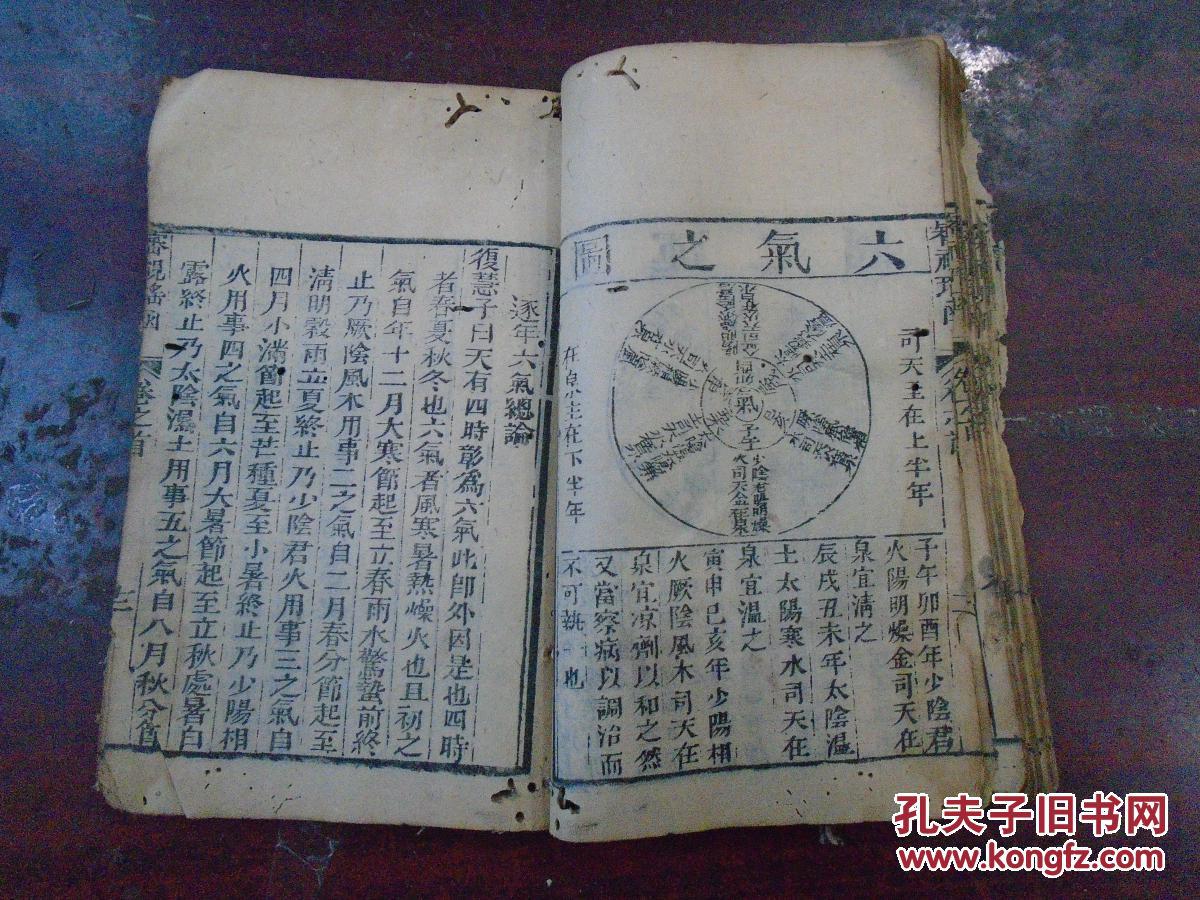 六氣之圖
司天主在上半年
氣
子午
少陰君
火司天
在泉主在下半年
子午卯酉年少陰君
火陽明燥金司天在
泉宜清之
辰戌丑未年太陰溫
土太陽寒水司天在
泉宜溫之
寅申巳亥年少陽相
火厥陰風木司天在
泉宜凉劑以和之然
又當察病以調治而
不可執一也
逐年六氣總論
復慧子曰天有四時彰為六氣此即外因是也四時
者春夏秋冬也六氣者風寒暑熱燥火也且初之
氣自年十二月大寒節起至立春雨水驚蟄前終
止乃厥陰風木用事二之氣自二月春分節起至
清明穀雨立夏終止乃少陰君火用事三之氣自
四月小滿節起至芒種夏至小暑終止乃少陽相
火用事四之氣自六月大暑節起至立秋處暑白
露終止乃太陰濕土用事五之氣自八月秋分節
審視瑤函
卷之首
二
孔夫子旧书网
www.kongfz.com